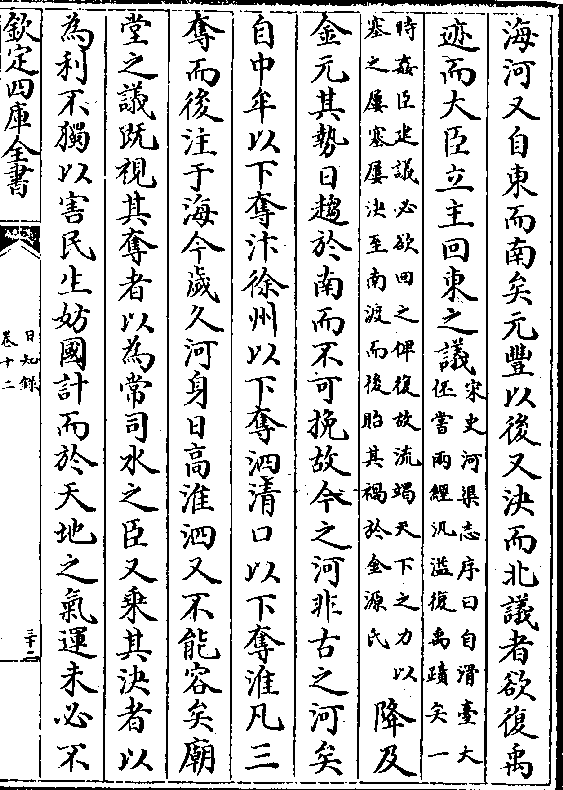 海河又自東而南矣元豐以後又決而北議者欲復禹
迹而大臣立主回東之議宋史河渠志序曰自滑臺大
伾嘗兩經汎溢復禹蹟矣一
時姦臣建議必欲回之俾復故流竭天下之力以
塞之屢塞屢決至南渡而後貽其禍於金源氏
降及
金元其勢日趨於南而不可挽故今之河非古之河矣
自中牟以下奪汴徐州以下奪泗清口以下奪淮凡三
奪而後注于海今歲久河身日高淮泗又不能容矣廟
堂之議既視其奪者以為常司水之臣又乘其決者以
為利不獨以害民生妨國計而於天地之氣運未必不
欽定四庫全書
日知錄
卷十二
三十二